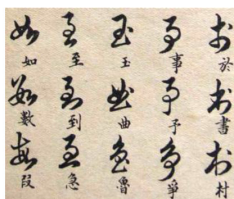 於書村
事予爭
玉曲魯
至到急
如數段